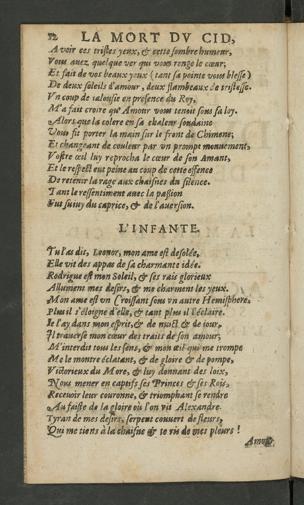 52 LA MORT DV CID,
A voir ces tristes yeux, & cette sombre humeur,
Vous auez quelque ver qui vous ronge le cœur;
Et fait de vos beaux yeux (tant sa pointe vous blesse)
De deux soleils d'amour, deux flambeaux de tristesse.
Vn coup de ialousie en presence du Roy,
M'a fait croire qu'Amour vous tenoit sous sa loy.
Alors que la colere en sa chaleur soudaine
Vous fit porter la main sur le front de Chimene;
Et changeant de couleur par vn prompt mouuement,
Vostre œil luy reprocha le cœur de son Amant,
Et le respect eut peine au coup de cette offence
De retenir la rage aux chaisnes du silence.
Tant le ressentiment auec la passion
Fut suiuy du caprice, & de l'auersion.
L'INFANTE.
Tu l'as dit, Leonor, mon ame est desolée,
Elle vit des appas de sa charmante idée.
Rodrigue est mon Soleil, & ses rais glorieux
Allument mes desirs, & me charment les yeux.
Mon ame est vn Croissant sous vn autre Hemisphere,
Plus il s'éloigne d'elle, & tant plus il l'éclaire.
Ie l'ay dans mon esprit, & de nuict & de iour,
Il trauerse mon cœur des traits de son amour,
M'interdit tous les sens, & mon œil qui me trompe
Me le montre éclatant, & de gloire & de pompe,
Victorieux du More, & luy donnant des loix,
Nous mener en captifs ses Princes & ses Rois,
Receuoir leur couronne, & triomphant se rendre
Au faiste de la gloire où l'on vit Alexandre.
Tyran de mes desirs, serpent couuert de fleurs,
Qui me tiens à la chaisne & te ris de mes pleurs!
Amour